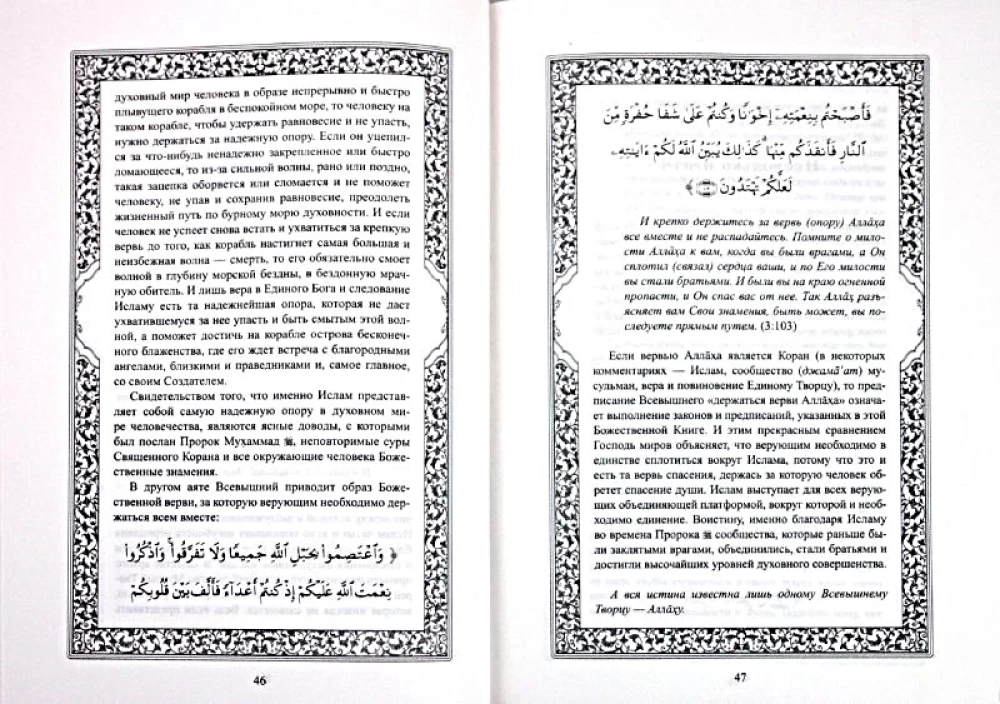 духовный мир человека в образе непрерывно и быстро
плывущего корабля в беспокойном море, то человеку на
таком корабле, чтобы удержать равновесие и не упасть,
нужно держаться за надежную опору. Если он уцепил-
ся за что-нибудь ненадежно закрепленное или быстро
ломающееся, то из-за сильной волны, рано или поздно,
такая зацепка оборвется или сломается и не поможет
человеку, не упав и сохранив равновесие, преодолеть
жизненный путь по бурному морю духовности. И если
человек не успеет снова встать и ухватиться за крепкую
вервь до того, как корабль настигнет самая большая и
неизбежная волна — смерть, то его обязательно смоет
волной в глубину морской бездны, в бездонную мрач-
ную обитель. И лишь вера в Единого Бога и следование
Исламу есть та надежнейшая опора, которая не даст
ухватившемуся за нее упасть и быть смытым этой вол-
ной, а поможет достичь на корабле острова бесконеч-
ного блаженства, где его ждет встреча с благородными
ангелами, близкими и праведниками и, самое главное,
со своим Создателем.
Свидетельством того, что именно Ислам представ-
ляет собой самую надежную опору в духовном ми-
ре человечества, являются ясные доводы, с которыми
был послан Пророк Мухаммад ﷺ, неповторимые суры
Священного Корана и все окружающие человека Боже-
ственные знамения.
В другом аяте Всевышний приводит образ Боже-
ственной верви, за которую верующим необходимо дер-
жаться всем вместе:
﴿ وَٱعْتَصِمُوا۟ بِحَبْلِ ٱللَّهِ جَمِيعًا وَلَا تَفَرَّقُوا۟ ۚ وَٱذْكُرُوا۟
نِعْمَتَ ٱللَّهِ عَلَيْكُمْ إِذْ كُنتُمْ أَعْدَآءً فَأَلَّفَ بَيْنَ قُلُوبِكُمْ
46
فَأَصْبَحْتُم بِنِعْمَتِهِۦٓ إِخْوَٰنًا وَكُنتُمْ عَلَىٰ شَفَا حُفْرَةٍ مِّنَ
ٱلنَّارِ فَأَنقَذَكُم مِّنْهَا ۗ كَذَٰلِكَ يُبَيِّنُ ٱللَّهُ لَكُمْ ءَايَـٰتِهِۦ
لَعَلَّكُمْ تَهْتَدُونَ ١٠٣ ﴾
И крепко держитесь за вервь (опору) Алла̄ха
все вместе и не распадайтесь. Помните о мило-
сти Алла̄ха к вам, когда вы были врагами, а Он
сплотил (связал) сердца ваши, и по Его милости
вы стали братьями. И были вы на краю огненной
пропасти, и Он спас вас от нее. Так Алла̄х разъ-
ясняет вам Свои знамения, быть может, вы по-
следуете прямым путем. (3:103)
Если вервью Алла̄ха является Коран (в некоторых
комментариях — Ислам, сообщество (джама̄‘ат) му-
сульман, вера и повиновение Единому Творцу), то пред-
писание Всевышнего «держаться верви Алла̄ха» означа-
ет выполнение законов и предписаний, указанных в этой
Божественной Книге. И этим прекрасным сравнением
Господь миров объясняет, что верующим необходимо в
единстве сплотиться вокруг Ислама, потому что это и
есть та вервь спасения, держась за которую человек об-
ретет спасение души. Ислам выступает для всех верую-
щих объединяющей платформой, вокруг которой и необ-
ходимо единение. Воистину, именно благодаря Исламу
во времена Пророка ﷺ сообщества, которые раньше бы-
ли заклятыми врагами, объединились, стали братьями и
достигли высочайших уровней духовного совершенства.
А вся истина известна лишь одному Всевышнему
Творцу — Алла̄ху.
47